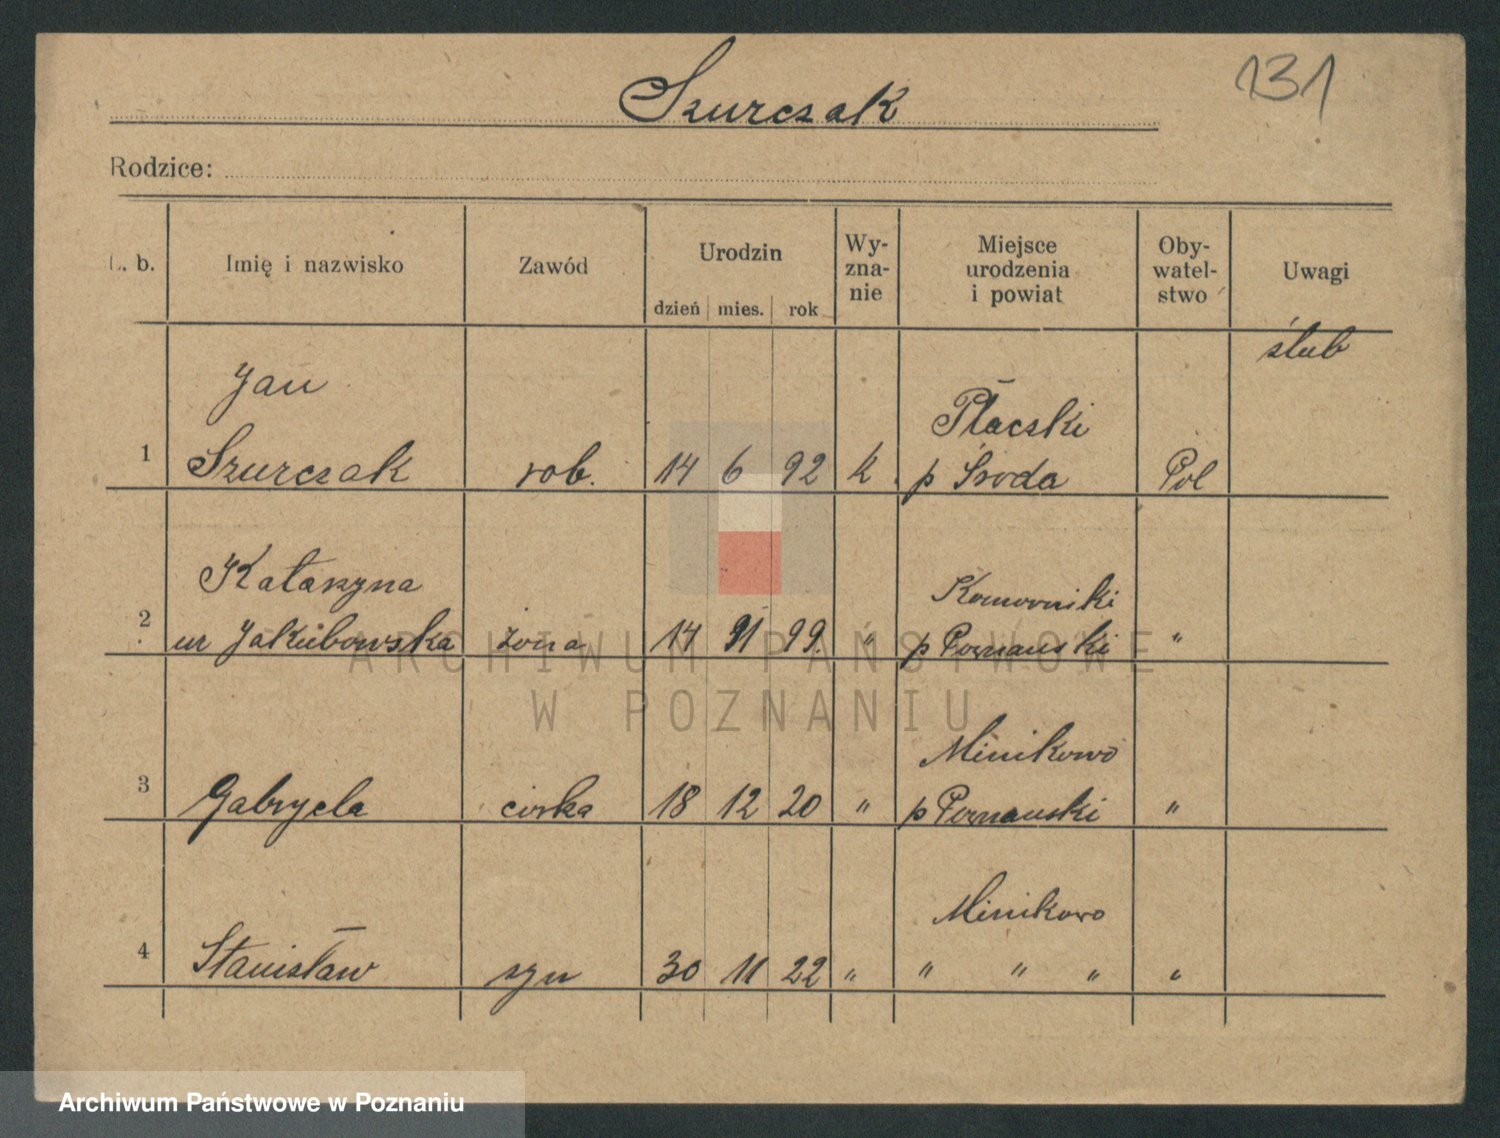 Szurczak
131
Rodzice:
L. b. Imię i nazwisko Zawód Urodzin dzień mies. rok Wy-zna-nie Miejsce urodzenia i powiat Oby-watel-stwo Uwagi
ślub
Jan Płaczki
1 Szurczak rob. 14 6 92 k p Środa Pol
Katarzyna Komorniki
2 ur Jakubowska żona 14 11 99. " p Poznański "
Minikowo
3 Gabryela córka 18 12 20 " p Poznański "
Minikowo
4 Stanisław syn 30 11 22 " " " " "
ARCHIWUM PAŃSTWOWE
W POZNANIU
Archiwum Państwowe w Poznaniu